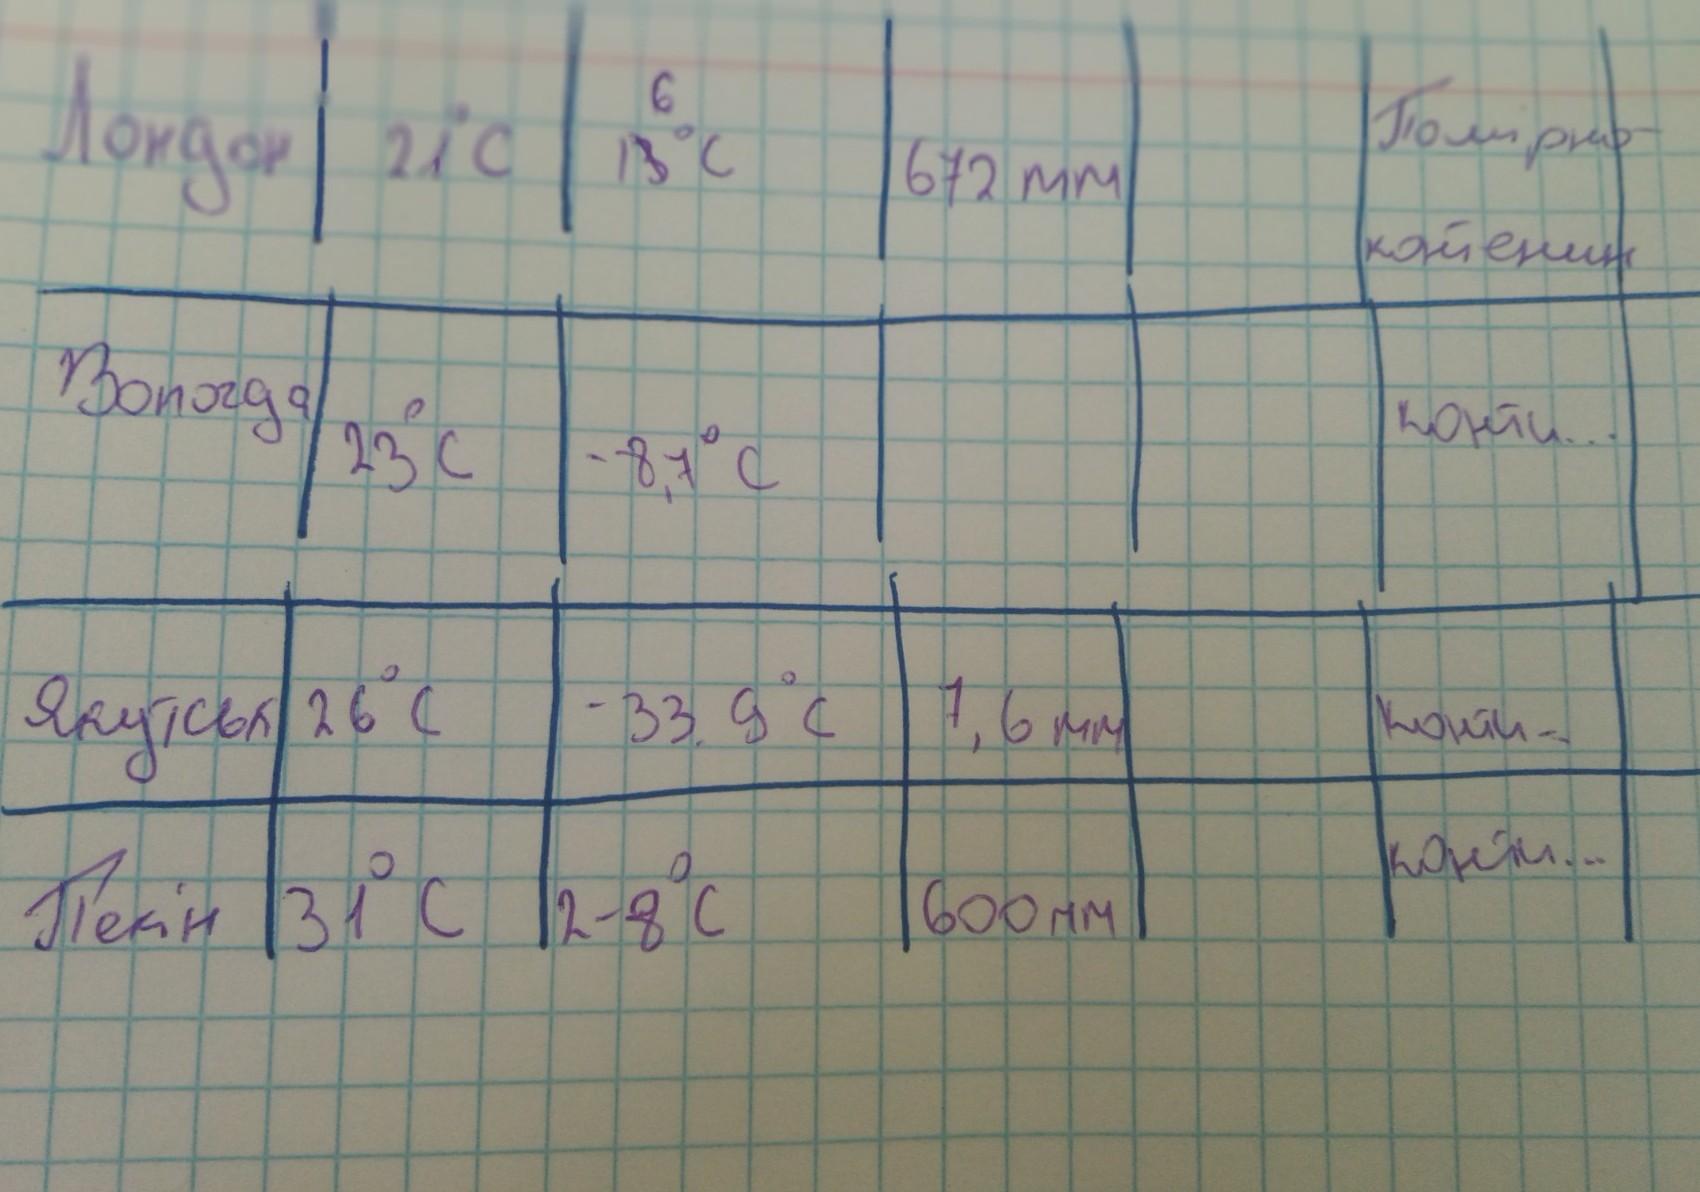 Лондон 21°C 6 13°C 672 мм Помірно-
контенин
Вологда 23°C -8,7°C конти...
Якутськ 26°C -33.9°C 7,6 мм конти...
Пекін 31°C 2-8°C 600мм конти...